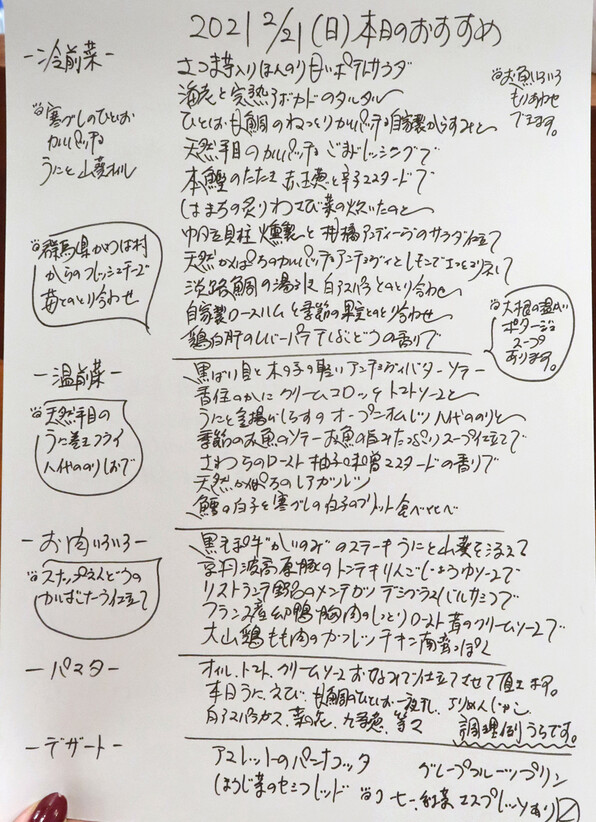 2021 2/21(日)本日のおすすめ
-冷前菜-
さつま芋入りほんのり甘いポテトサラダ
海老と完熟アボカドのタルタル
ひとしお甘鯛のねっとりカルパッチョ自家製からすみと
天然平目のカルパッチョ ごまドレッシングで
本鰹のたたき 赤玉葱と辛子マスタードで
はまちの炙り わさび菜の炊いたのと
帆立貝柱 燻製っと 柑橘アンディーブのサラダ仕立て
天然かんぱちのカルパッチョ アンチョヴィとレモンで
淡路鯛の湯引 白アスパラとのとり合わせ
自家製ロースハムと季節の果実とのとり合わせ
鶏白肝のレバーパテ ぶどうの香りで
お魚いろいろ
もりあわせ
できます。
寒ざしのひとしお
カルパッチョ
うにと山葵オイル
群馬県かわば村
からのフレッシュチーズ
苺とのとり合わせ
大根の温かい
ポタージュ
スープ
あります。
-温前菜-
黒ばい貝と木の子の軽いアンチョヴィバターソテー
香住のかにクリームコロッケ トマトソースと
うにと釜揚げしらすのオープンオムレツ 八代ののりと
季節のお魚のソテー お魚の旨みたっぷりスープ仕立てで
さわらのロースト 柚子味噌マスタードの香りで
天然かんぱちのレアカツレツ
鱈の白子と寒ざしの白子のフリット食べくらべ
天然平目の
うに巻きフライ
八代ののりしおで
-お肉いろいろ-
黒毛和牛"かいのみ"のステーキ うにと山葵を添えて
京丹波高原豚のトンテキ りんごじょうゆソースで
リストランテ野呂のメンチカツ デミグラスバルサミコで
フランス産幼鴨胸肉のしっとりロースト 茸のクリームソースで
大山鶏もも肉のカツレツ チキン南蛮っぽく
スナップえんどうの
カルボナーラ仕立て
-パスタ-
オイル、トマト、クリームソースお好みで仕立てさせて頂きます。
本日うに、えび、甘鯛のひとしお一夜干し、ちりめんじゃこ、
白アスパラガス、菜の花、九条葱、等々
調理例うらです。
-デザート-
アマレットのパンナコッタ
グレープフルーツプリン
ほうじ茶のセミフレッド
コーヒー、紅茶、エスプレッソあり